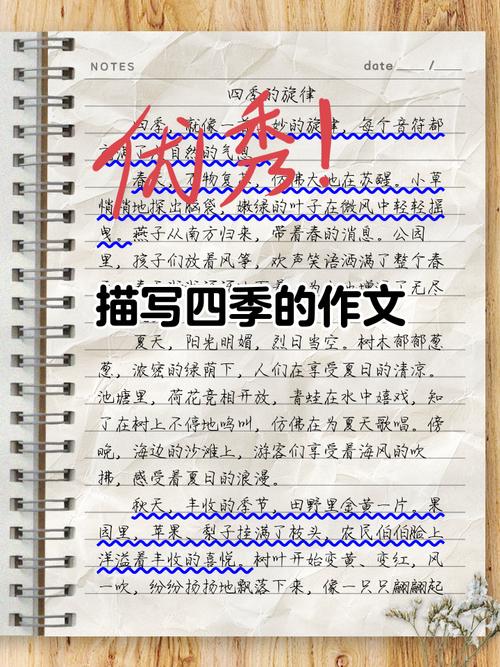 NOTES
date /
四季的旋律
四季，就像一首 妙的旋律，每个音符都
满了 自然的气息
春天，万物复苏，仿佛大地在苏醒。小草
悄悄地探出脑袋，嫩绿的叶子在微风中轻轻摇
曳。燕子从南方归来，带着春的消息。公园
里，孩子们放着风筝，欢声笑语洒满了整个春
了无尽
夏天，阳光明媚，烈日当空。树木郁郁葱
葱，浓密的绿荫下，人们在享受夏日的清凉。
池塘里，荷花竞相开放，青蛙在水中嬉戏，知
了在树上不停地鸣叫，仿佛在为夏天歌唱。傍
晚，海边的沙滩上，游客们享受着海风的吹
拂，感受着夏日的浪漫。
秋天，丰收的季节，田野里金黄一片。果
园里，苹果、梨子挂满了枝头，农民伯伯脸上
洋溢着丰收的喜悦。树叶开始变黄、变红，风
一吹，纷纷扬扬地飘落下来，像一只只翩翩起
优秀！
描写四季的作文